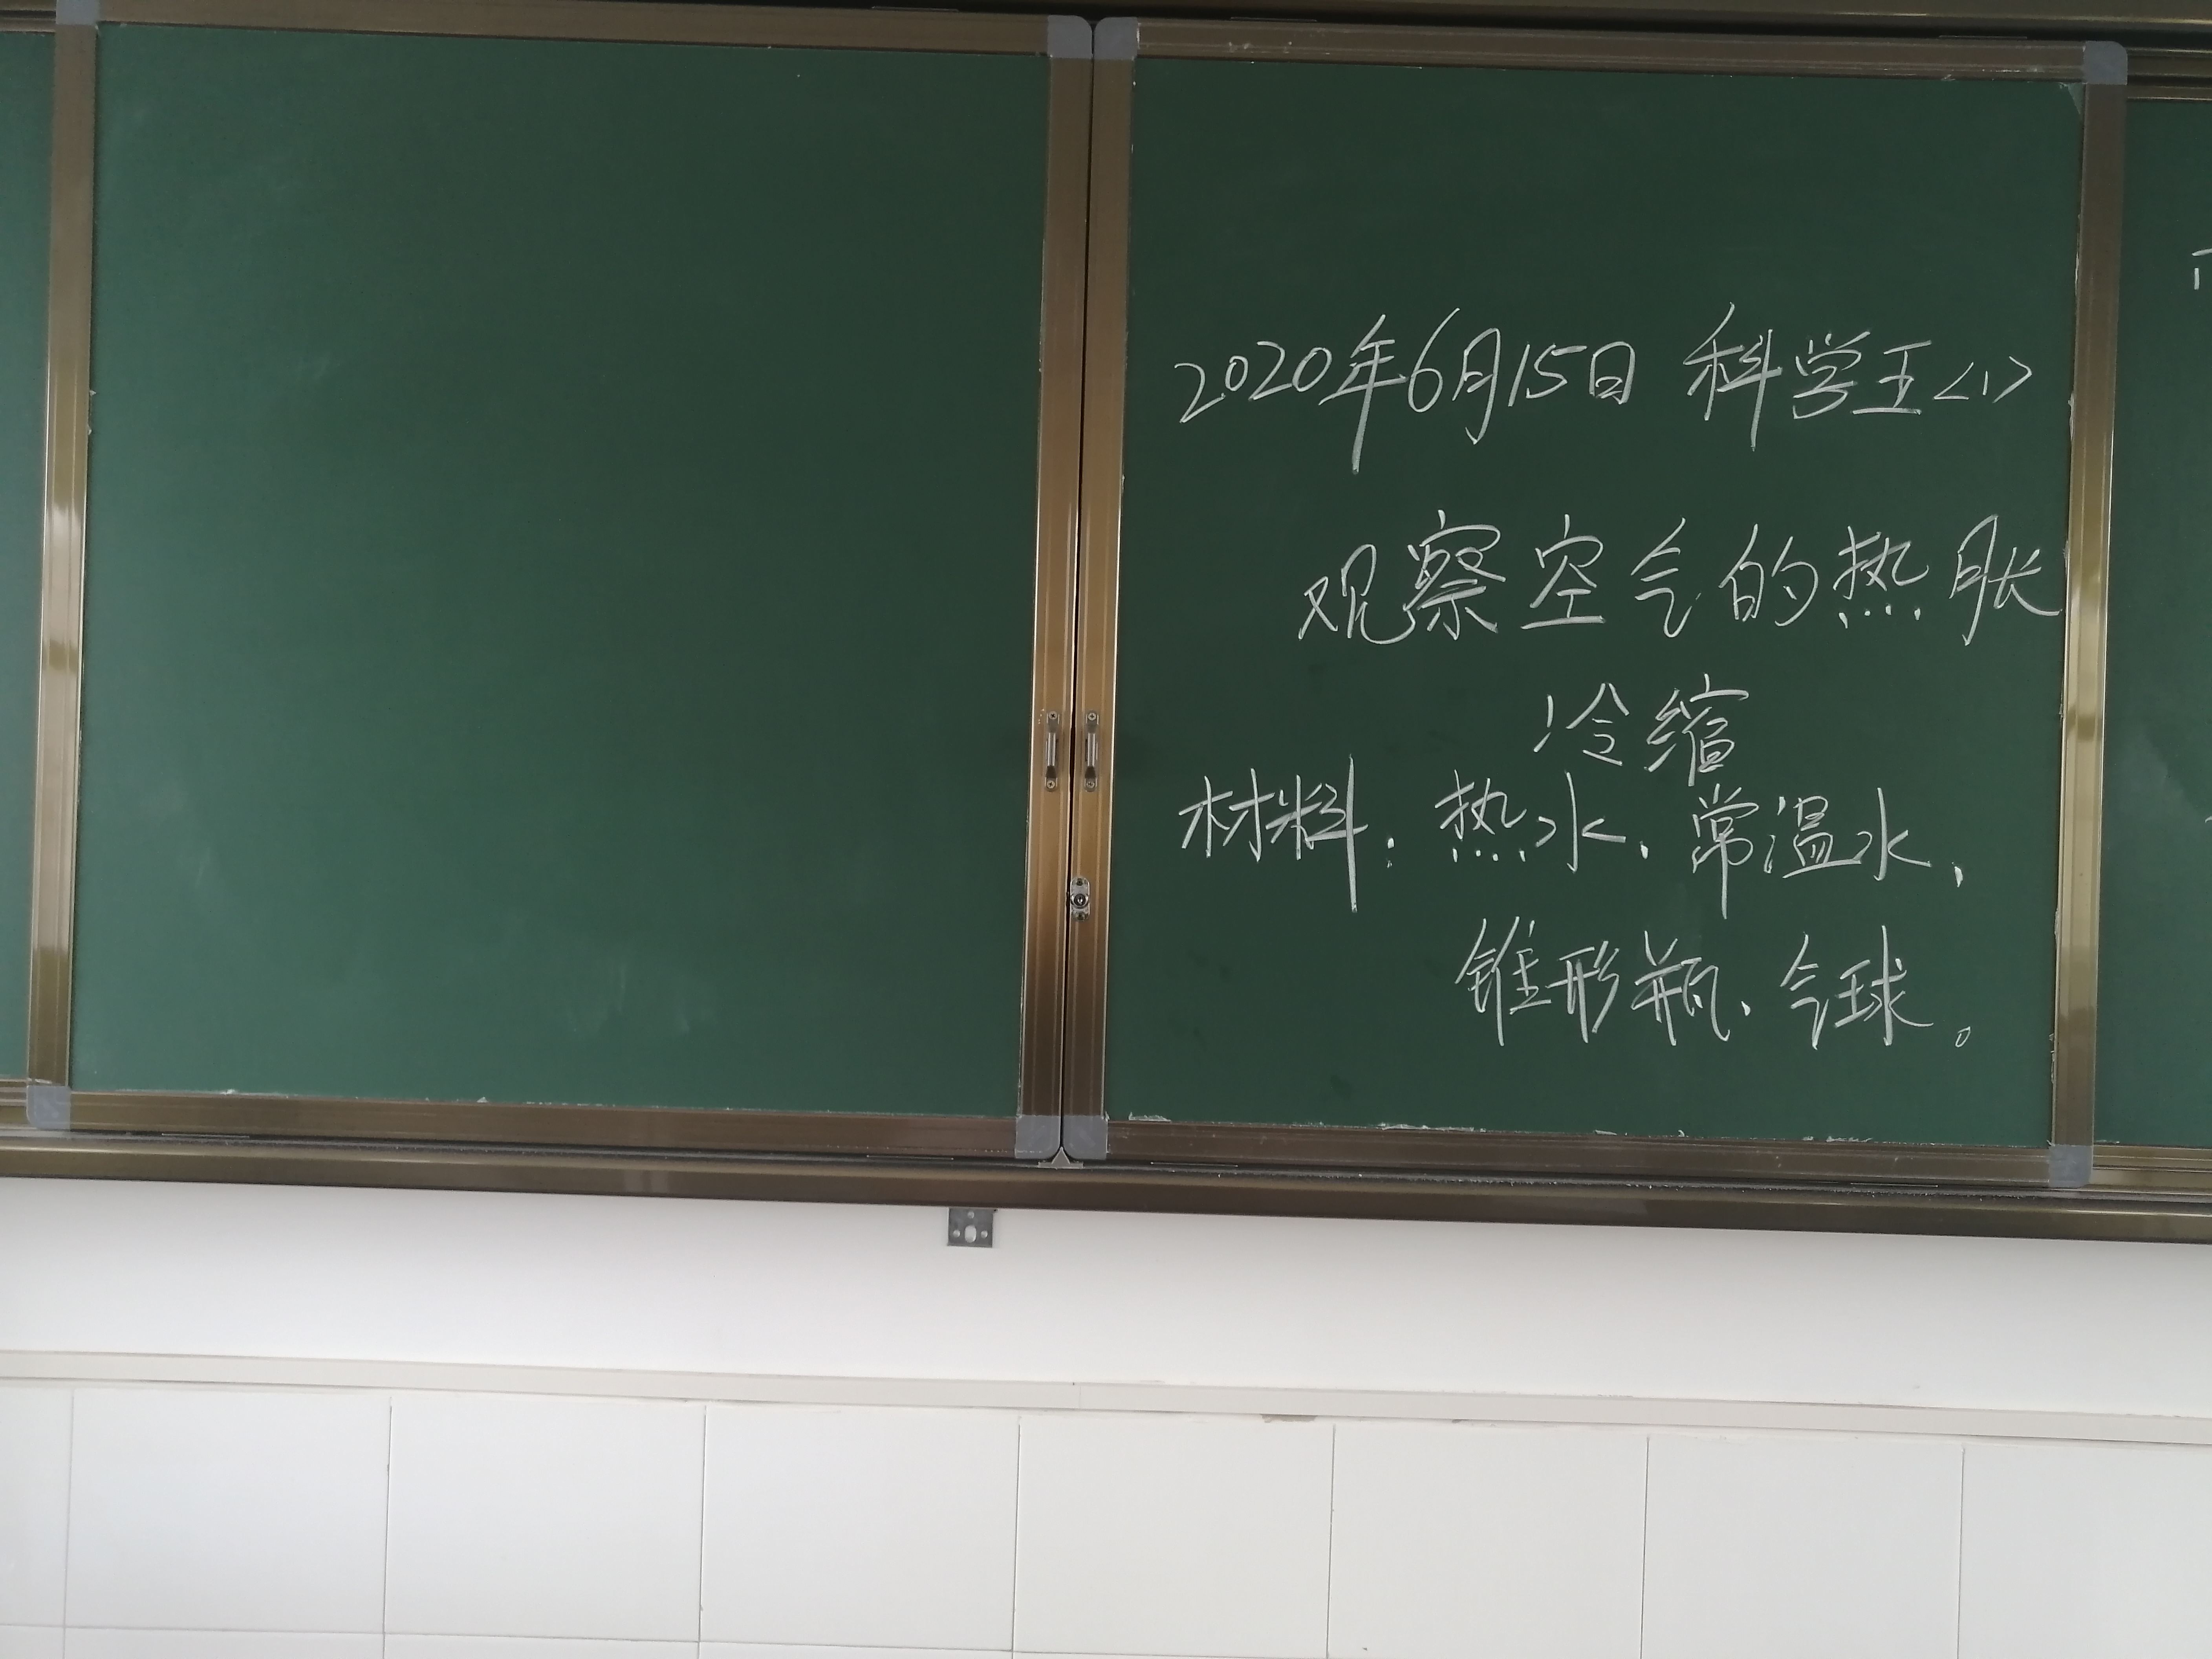 2020年6月15日 科学王<1>
观察空气的热胀
冷缩
材料：热水、常温水、
锥形瓶、气球。